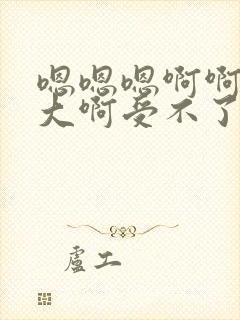 嗯嗯嗯啊啊
大啊受不了
虐工